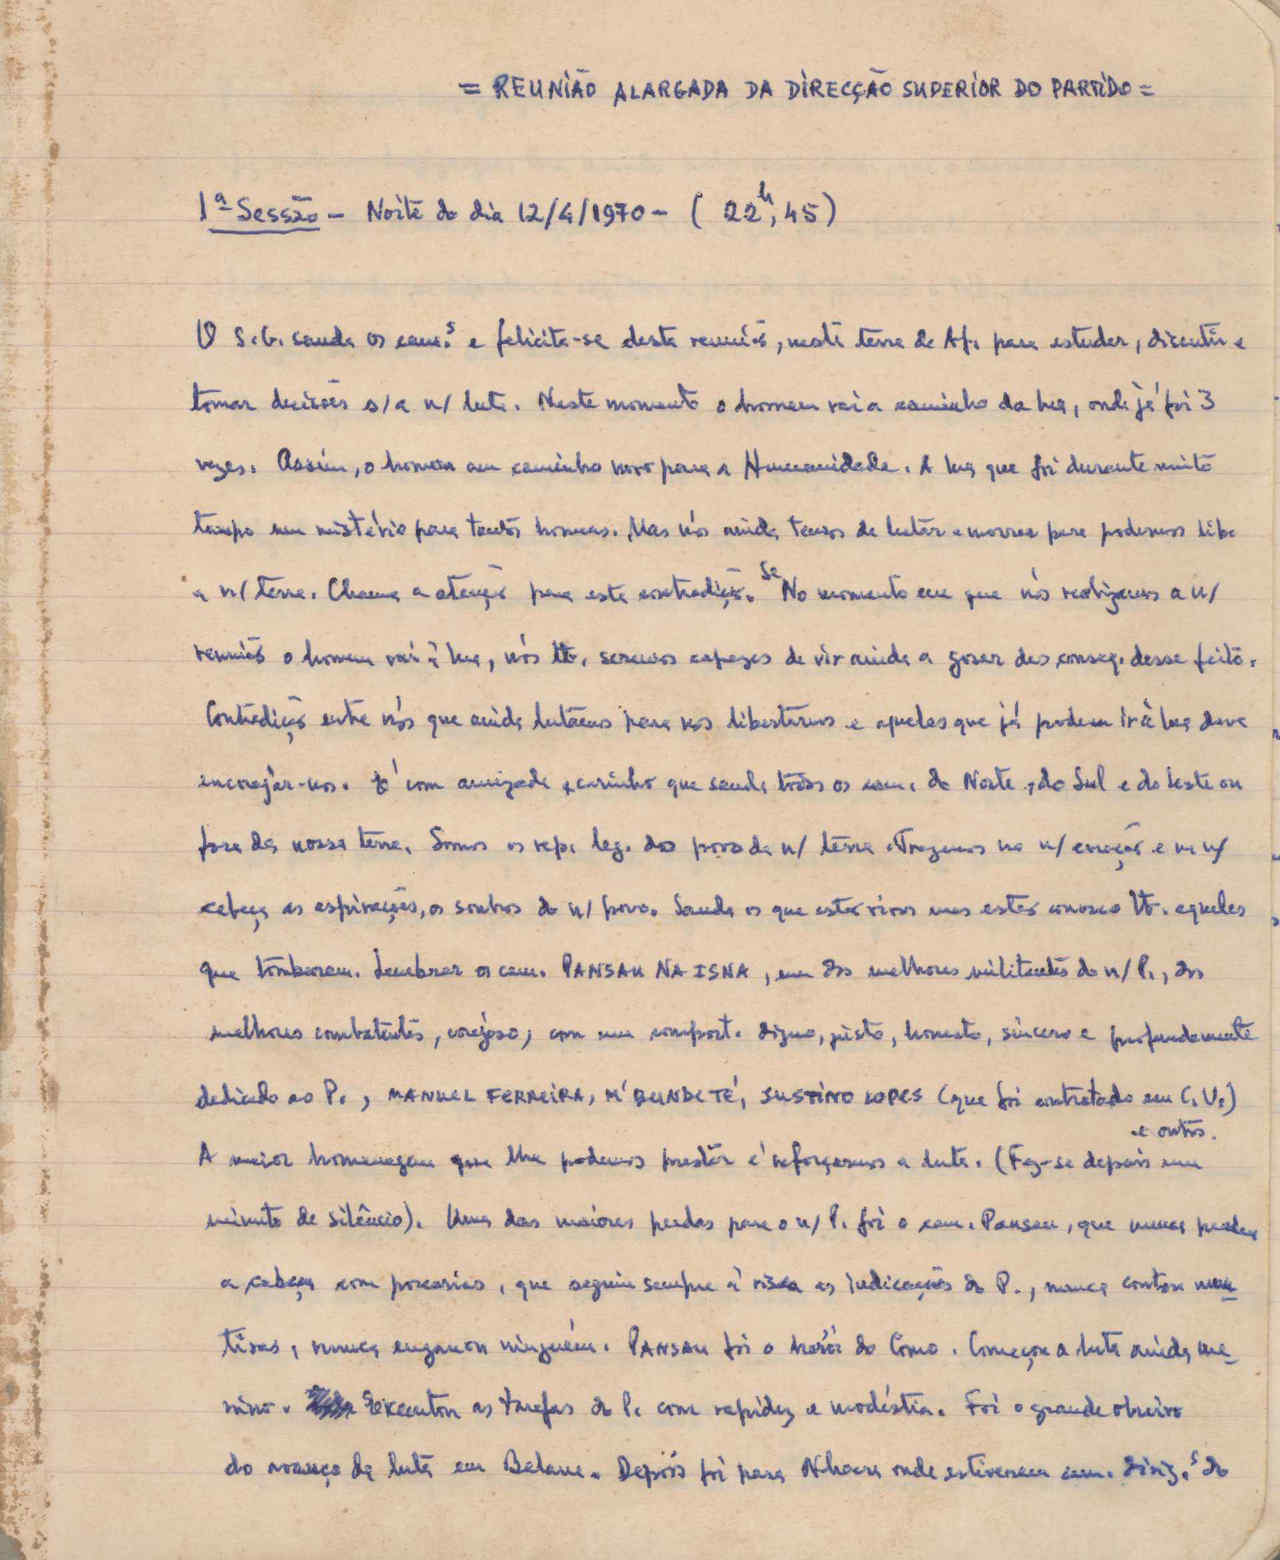 = REUNIÃO ALARGADA DA DIRECÇÃO SUPERIOR DO PARTIDO =
1ª Sessão - Noite do dia 12/4/1970 - ( 22h,45)
O S.G. sauda os cam.s e felicita-se desta reunião, nesta terra de Af. para estudar, discutir e
tomar decisões s/ a n/ luta. Neste momento o homem vai a caminho da lua, onde já foi 3
vezes. Assim, o homem caminho novo para a Humanidade. A lua que foi durante muito
tempo um mistério para tantos homens. Mas nós ainda temos de lutar e morrer para podermos
a n/ terra. Chama a atenção para esta contradição. Se No momento em que nós realizamos a n/
reunião o homem vai à lua, nós tb. seremos capazes de vir ainda a gosar das conseq. desse feito.
Contradição entre nós que ainda lutamos para nos libertarmos e aqueles que já podem ir à lua deve
encorajar-nos. É com amizade e carinho que sauda todos os cam. do Norte, do Sul e do Leste ou
fora da nossa terra. Somos os rep. leg. do povo da n/ terra. Trazemos no n/ coração e na n/
cabeça as aspirações, os sonhos do n/ povo. Sauda os que estão vivos mas estão conosco tb. aqueles
que tombaram. Lembrar os cam. PANSAU NA ISNA, um dos melhores militantes do n/ P., dos
melhores combatentes, corajoso, com um comport. digno, justo, honesto, sincero e profundamente
dedicado ao P., MANUEL FERREIRA, M'BUNDE TÉ, JUSTINO LOPES (que foi contratado em C.V.)
e outros.
A maior homenagem que lhe podemos prestar é reforçarmos a luta. (Fez-se depois um
minuto de silêncio). Uma das maiores perdas para o n/ P. foi o cam. Pansau, que nunca perdeu
a cabeça com porcarias, que seguiu sempre à risca as indicações do P., nunca contou men-
tiras, nunca enganou ninguém. PANSAU foi o herói do Como. Começou a luta ainda me-
nino. Executou as tarefas do P. com rapidez e modéstia. Foi o grande obreiro
do avanço da luta em Balana. Depois foi para Nhacra onde estiveram cam. dirig.s do